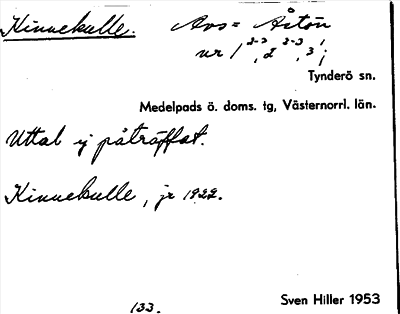 Kinnekulle. Avs = Åstön
nr 1²⁻³, 2²⁻³, 3¹;
Tynderö sn.
Medelpads ö. doms. tg, Västernorrl. län.
Uttal ej påträffat.
Kinnekulle, jr 1922.
133.
Sven Hiller 1953